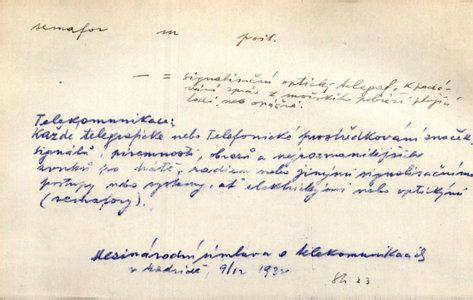 semafor m pošt.
— = signalisační optický telegraf, k podá-
vání zpráv z mořského pobřeží plující
lodi, neb opačně.
Telekomunikace:
Každé telegrafické nebo telefonické prostředkování značek,
signálů, písemností, obrazů a nejrozmanitějšího
zvuků po drátě, radiem nebo jinými signalisačními
postupy nebo systemy, ať elektrickými nebo optickými
(semafory).
Mezinárodní úmluva o telekomunikacích
v Madridě, 9/12 1932